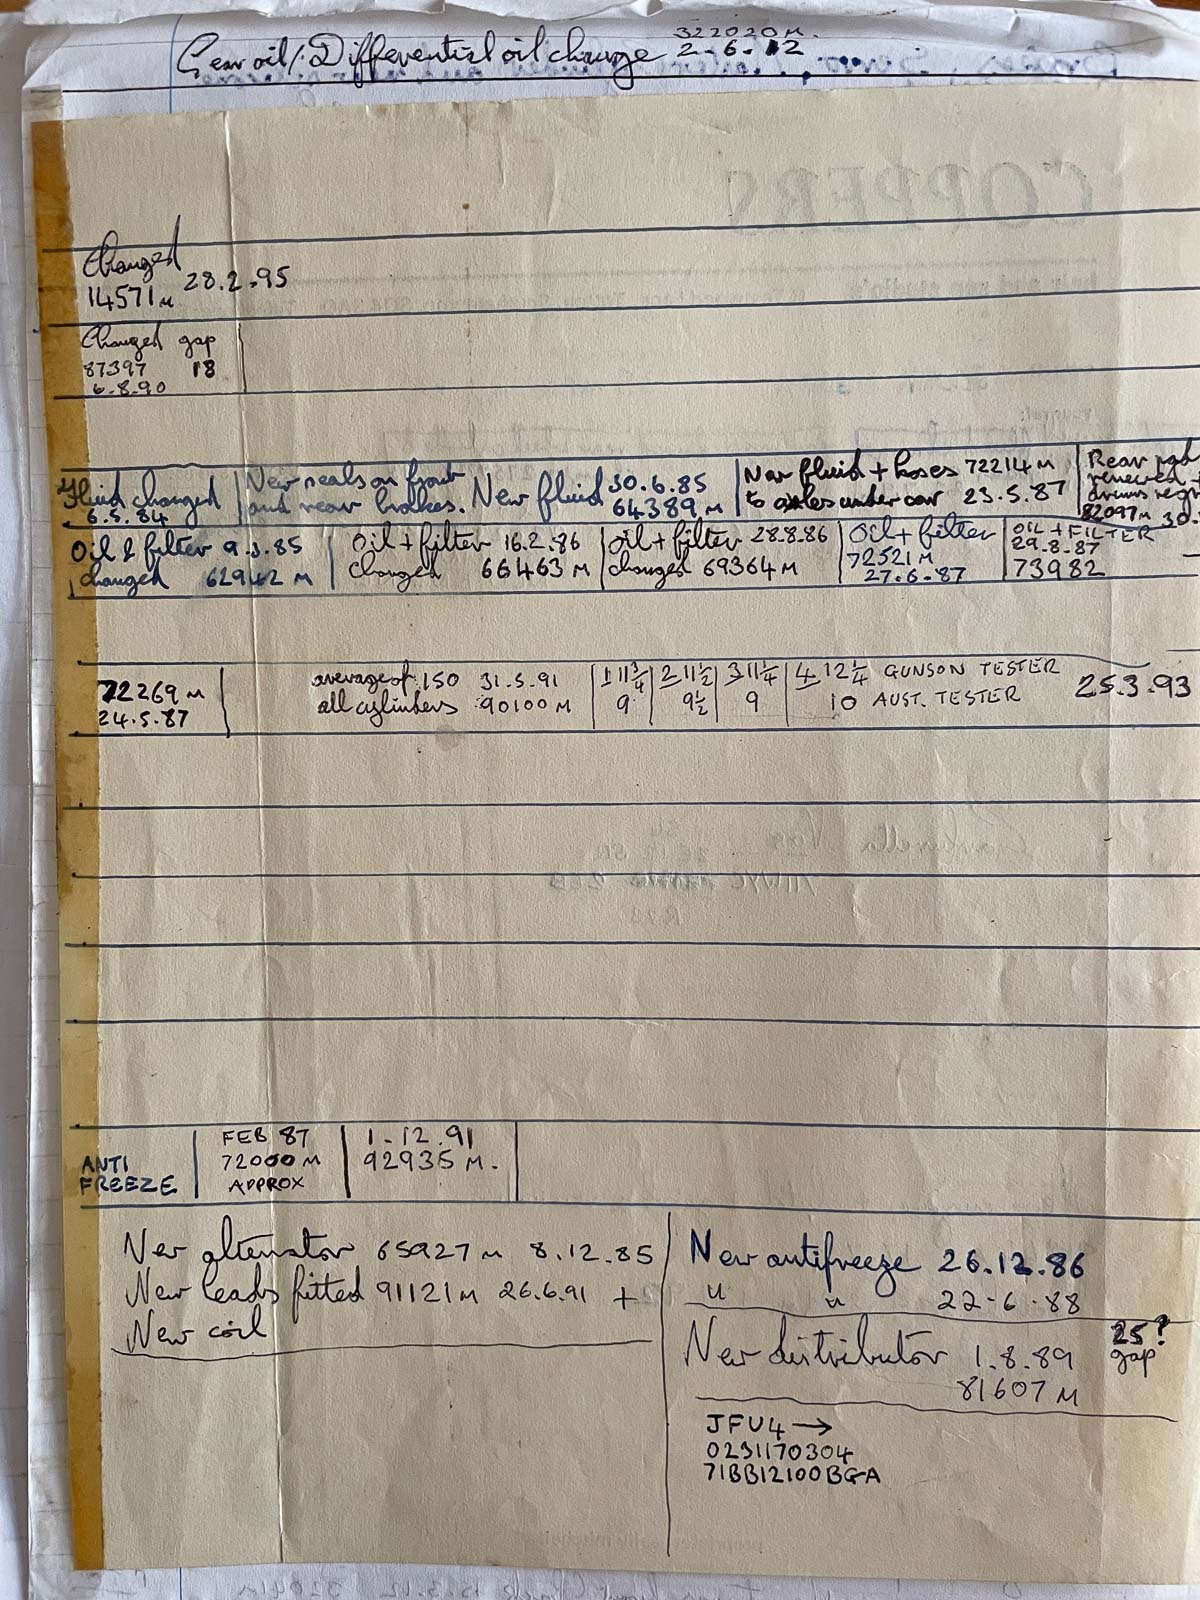 322020 M.
Gear oil/Differential oil change 2-6-12
COPPERS
Changed
14571 M 28.2.95
Changed gap
87397 18
6.8.90
Fluid changed
6.5.84
New seals on front
and rear brakes. New fluid 30.6.85
64389 M
New fluid + hoses 72214 M
to axles under car 23.5.87
Rear
renewed +
drums
82097 M 30.
Oil & filter 9.3.85
changed 62942 M
Oil + filter 16.2.86
changed 66463 M
Oil + filter 28.8.86
changed 69364 M
Oil + filter
72521 M
27.6.87
OIL + FILTER
29.8.87
73982
72269 M
24.5.87
average of 150 31.5.91
all cylinders 90100 M
1 11 3/4 2 11 1/2 3 11 1/4 4 12 1/4 GUNSON TESTER
9 9 1/2 9 10 AUST. TESTER
25.3.93
ANTI
FREEZE
FEB 87
72000 M
APPROX
1.12.91
92935 M.
New alternator 65927 M 8.12.85
New leads fitted 91121 M 26.6.91 +
New coil
New antifreeze 26.12.86
" " 22-6-88
New distributor 1.8.89
81607 M
25?
gap
JFU4 →
0231170304
71BB12100BGA